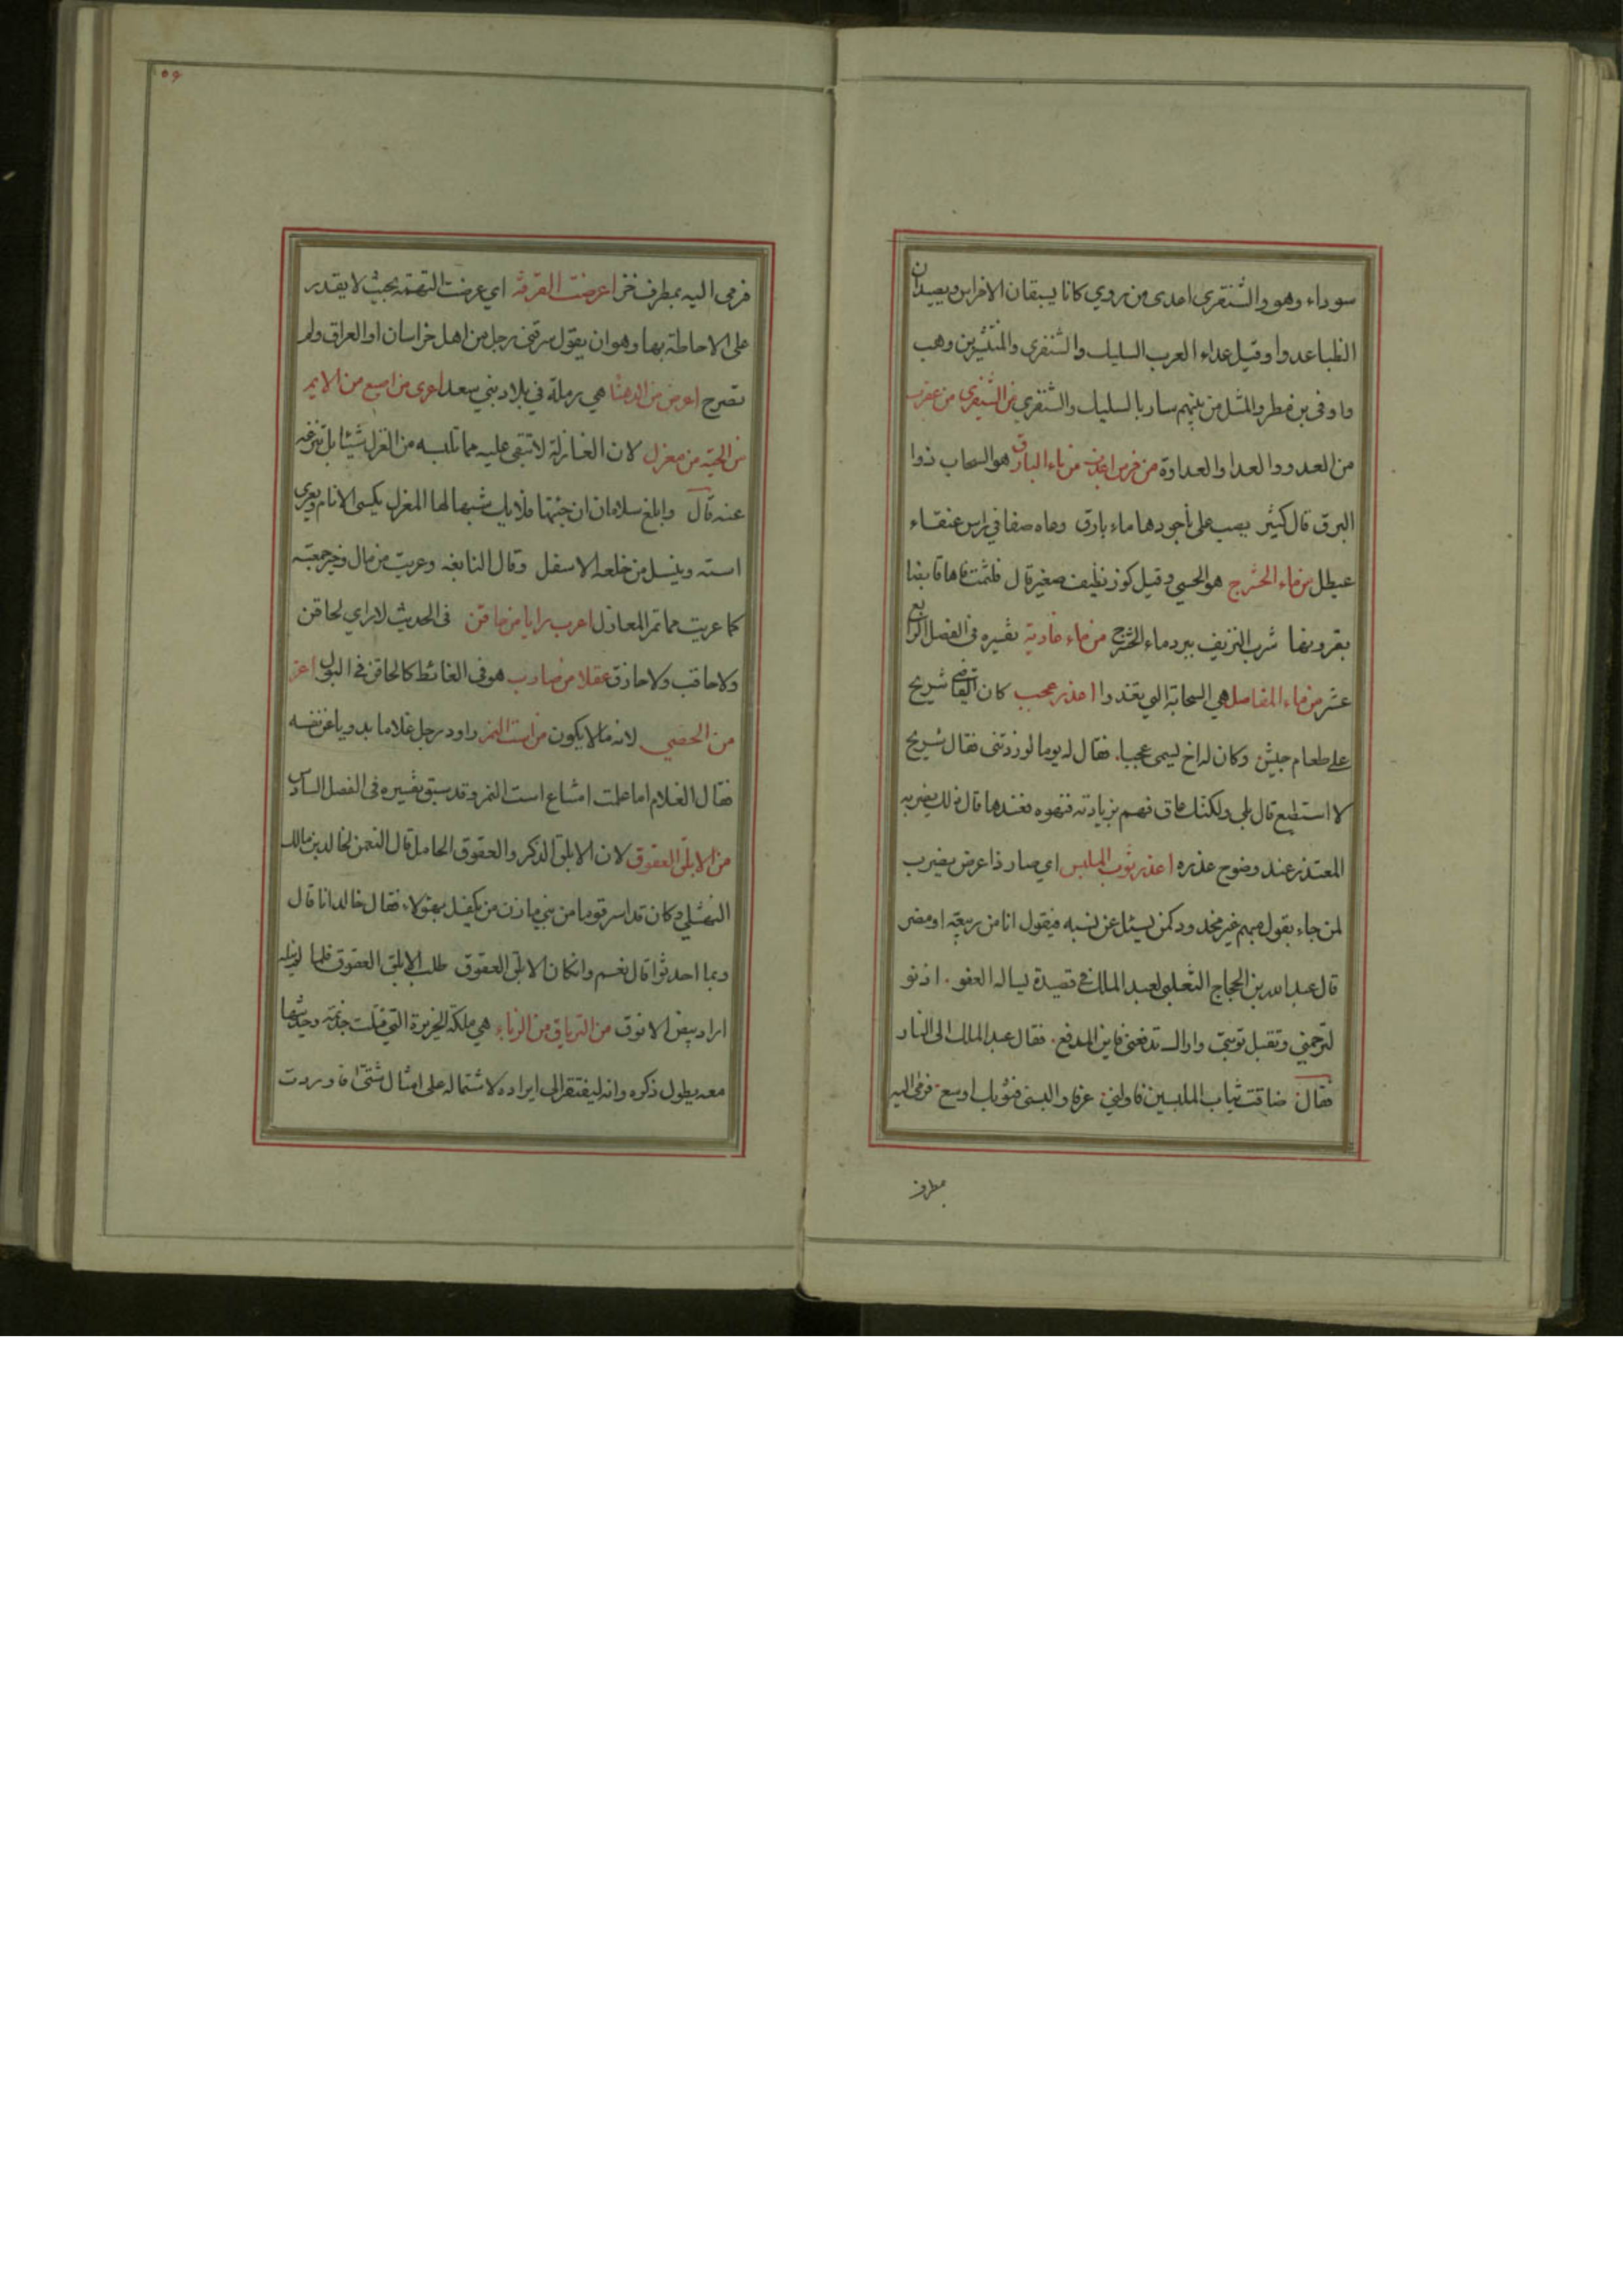 سوداء وهو والشنفرى احدى من روي كانا يسبقان الافراس ويصيدان
الظبا عدوا وقيل عداء العرب السليك والشنفرى والمنتشر بن وهب
واوفى بن مطر والمثل من بينهم سار بالسليك والشنفرى من الشنفرى من عقرب
من العدو والعدا والعداوة من خرس اعذب من ماء البارق هو السحاب ذوا
البرق قال كثير يصب على ناجودها ماء بارق وعاه صفا في راس عنقاء
عيطل من ماء الحشرج هو الحسي وقيل كوز نظيف صغير قال فلثمت فاها قابضا
بقرونها شرب النزيف ببرد ماء الحشرج من ماء غادية تفسيره في الفصل الرابع
عشر من ماء المفاصل هي السحابة التي تغدوا اعذر عجب كان القاضي شريح
على طعام جيش وكان له اخ ليسمى عجبا. فقال له يوما لو زدتني فقال شريح
لا استطيع قال بلى ولكنك عاق فهم بزيادته فنهوه فعندها قال ذلك يضربه
المعتذر عند وضوح عذره اعذر ثوب الملبس اي صار ذا عرض يضرب
لمن جاء بقول مبهم غير محدود كمن يسئل عن نسبه فيقول انا من ربيعة او مضر
قال عبد الله بن الحجاج الثعلبي لعبد الملك في قصيدة يساله العفو. ادنو
لترحمني وتقبل توبتي واراك تدفعني فاين المدفع. فقال عبد الملك الى النار
فقال ضاقت ثياب الملبسين فاولني عرفا والبسني فثوبك اوسع. فرمى اليه
مطرف
٥۶
فرمى اليه بمطرف خز اعرضت القرفة اي عرضت التهمة بحيث لا يقدر
على الاحاطة بها وهو ان يقول سرقني رجل من اهل خراسان او العراق ولم
تصرح اعرض من الدهنا هي رملة في بلاد بني سعد اعرى من اصبع من الايم
من الحية من مغزل لان الغازلة لا تبقي عليه مما تلبسه من الغزل شيئا بل تنزعه
عنه قال وابلغ سلامان ان جئتها فلا يك شبها لها المغزل يكسى الانام ويعرى
استه وينسل من خلعه الاسفل وقال النابغه وعريت من مال وخير جمعته
كما عريت مما تمر المغازل اعرب رايا من حاقن في الحديث لا راي لحاقن
ولا حاقب ولا حازق عقلا من صارب هو في الغائط كالحاقن في البول اعز
من الخصي لانه مما لا يكون من است النمر راود رجل غلاما بدويا عن نفسه
فقال الغلام اما علمت امتناع است النمر وقد سبق تفسيره في الفصل السادس
من الابلق العقوق لان الابلق الذكر والعقوق الحامل قال النعمن لخالد بن مالك
النهشلي وكان قد اسر قوما من بني مازن من يكفل بهؤلاء. فقال خالد انا قال
وبما احدثوا قال نعم وان كان الابلق العقوق طلب الابلق العقوق فلما لم ينله
اراد بيض الانوق من الترياق من الزباء هي ملكة الجزيرة التي قتلت جذيمة وحديثها
معه يطول ذكره وانه ليفتقر الى ايراده لاشتماله على امثال شتى فاوردت